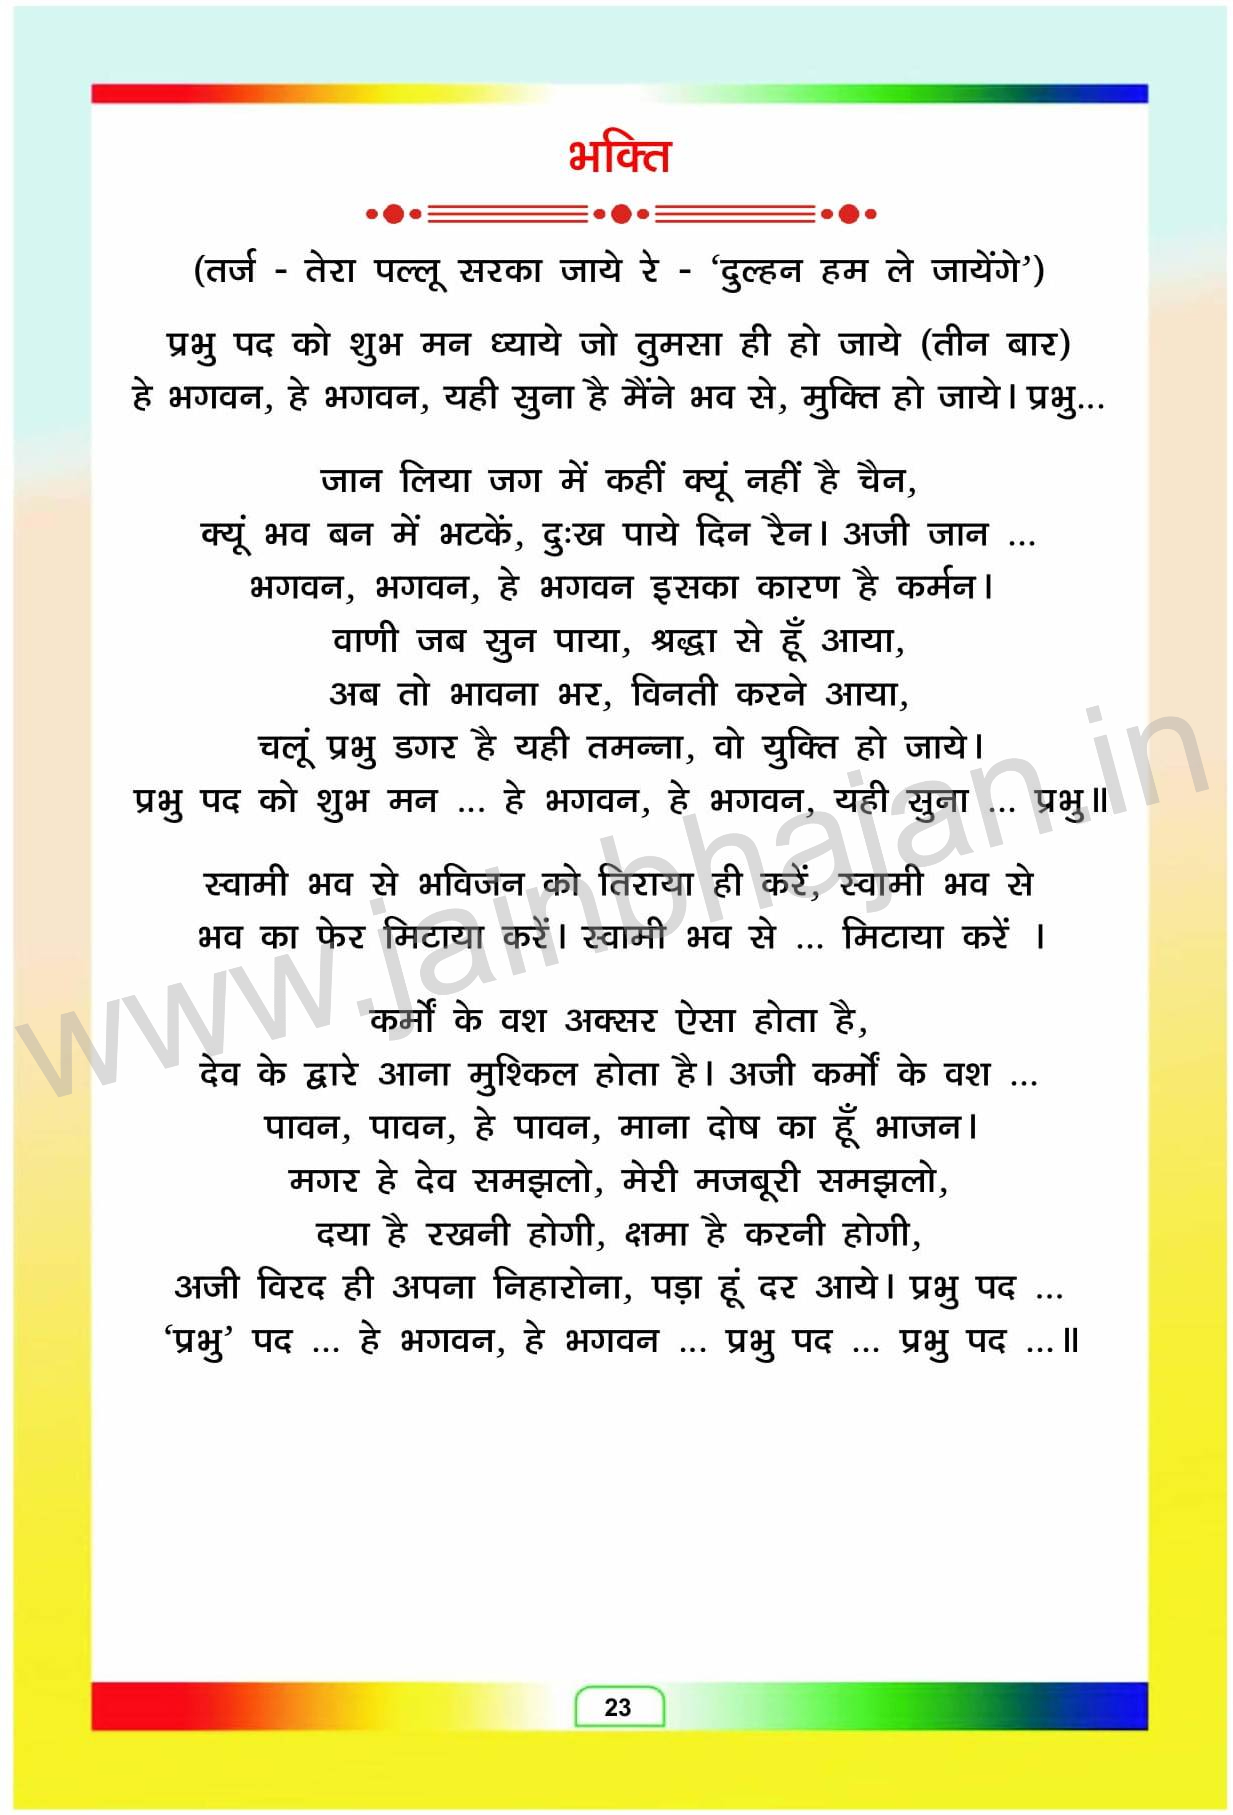 भक्ति
(तर्ज - तेरा पल्लू सरका जाये रे - ‘दुल्हन हम ले जायेंगे’)
प्रभु पद को शुभ मन ध्याये जो तुमसा ही हो जाये (तीन बार)
हे भगवन, हे भगवन, यही सुना है मैंने भव से, मुक्ति हो जाये। प्रभु...
जान लिया जग में कहीं क्यूं नहीं है चैन,
क्यूं भव बन में भटकें, दुःख पाये दिन रैन। अजी जान ...
भगवन, भगवन, हे भगवन इसका कारण है कर्मन।
वाणी जब सुन पाया, श्रद्धा से हूँ आया,
अब तो भावना भर, विनती करने आया,
चलूं प्रभु डगर है यही तमन्ना, वो युक्ति हो जाये।
प्रभु पद को शुभ मन ... हे भगवन, हे भगवन, यही सुना ... प्रभु॥
स्वामी भव से भविजन को तिराया ही करें, स्वामी भव से
भव का फेर मिटाया करें। स्वामी भव से ... मिटाया करें ।
कर्मों के वश अक्सर ऐसा होता है,
देव के द्वारे आना मुश्किल होता है। अजी कर्मों के वश ...
पावन, पावन, हे पावन, माना दोष का हूँ भाजन।
मगर हे देव समझलो, मेरी मजबूरी समझलो,
दया है रखनी होगी, क्षमा है करनी होगी,
अजी विरद ही अपना निहारोना, पड़ा हूं दर आये। प्रभु पद ...
‘प्रभु’ पद ... हे भगवन, हे भगवन ... प्रभु पद ... प्रभु पद ...॥
www.jainbhajan.in
23